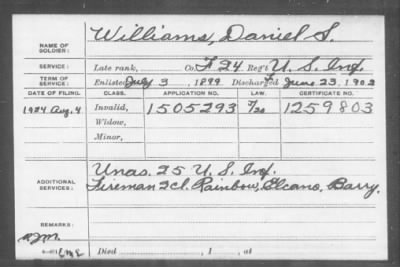 Williams, Daniel S.
NAME OF SOLDIER:
SERVICE: Late rank, Co. F 24 Reg't U. S. Inf.
TERM OF SERVICE: Enlisted July 3, 1899 Discharged June 23, 1902
DATE OF FILING. CLASS. APPLICATION NO. LAW. CERTIFICATE NO.
1924 Aug. 4 Invalid, 1505293 1259803
Widow,
Minor,
ADDITIONAL SERVICES: Unas. 25 U. S. Inf.
Fireman 2cl. Rainbow, Elcano, Barry.
REMARKS:
Died , 1 , at